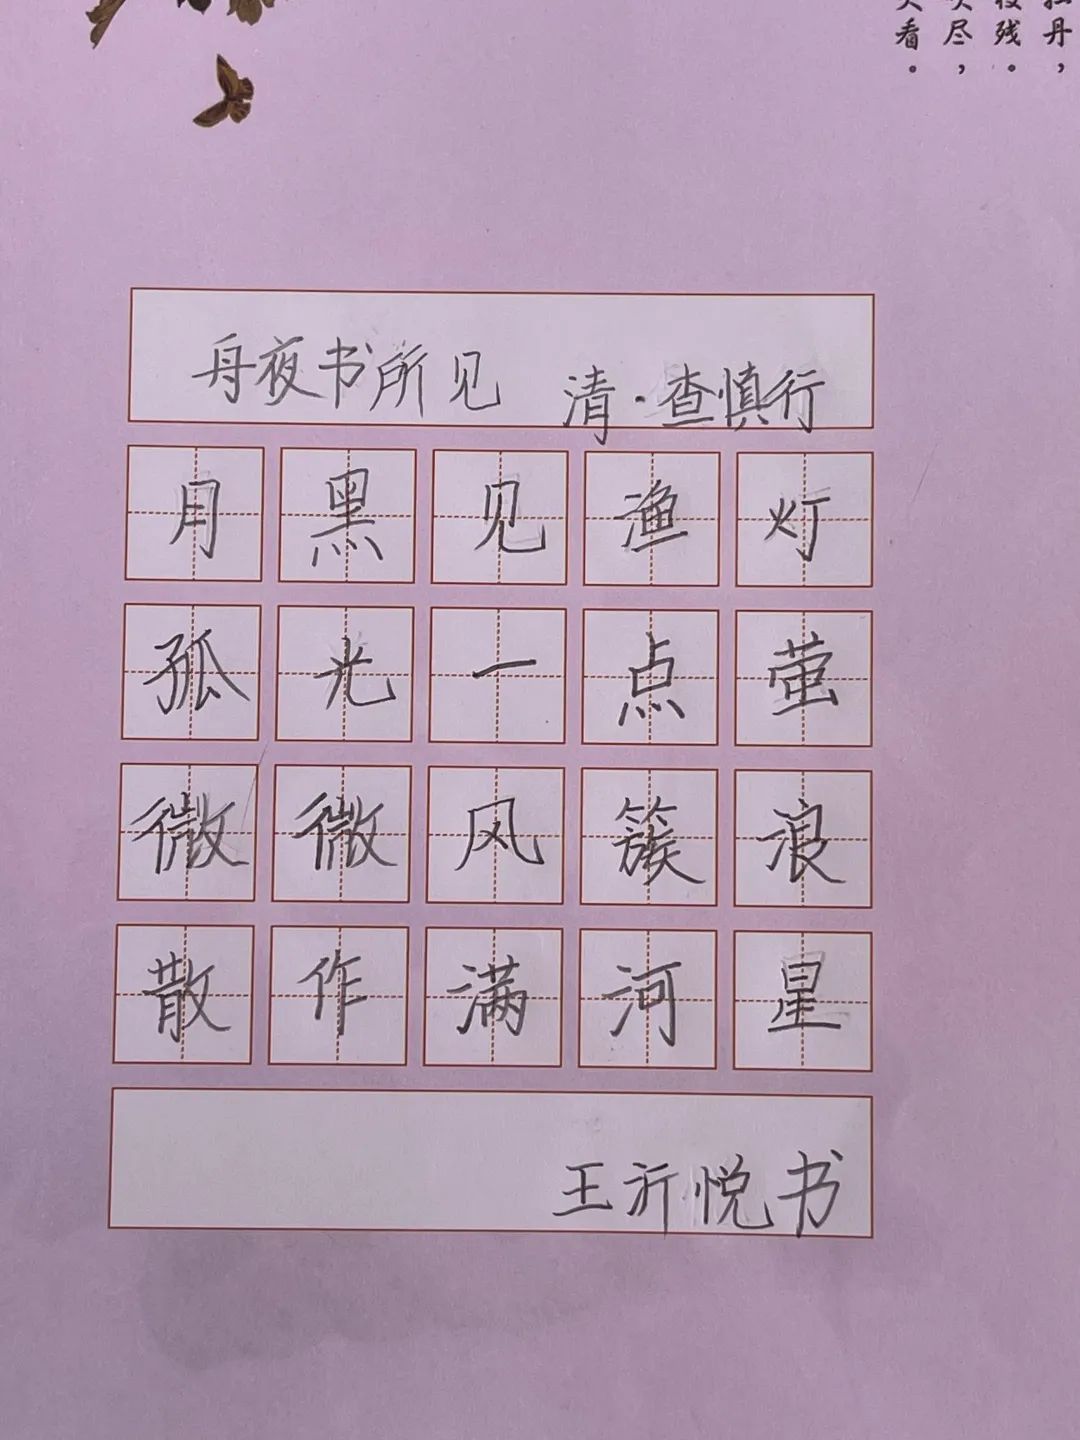 舟夜书所见 清·查慎行
月黑见渔灯
孤光一点萤
微微风簇浪
散作满河星
王沂悦书
丹，
残。
尽，
看。